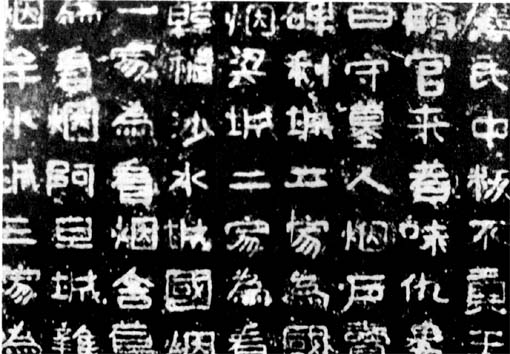 屬民中叛不貢王
官來者味仇婁
百守墓人烟戶賣
碑利城二家為國
烟梁城二家為看
韓穢沙水城國烟
一家為看烟舍蔦
為看烟阿旦城雜
烟牟水城三家為